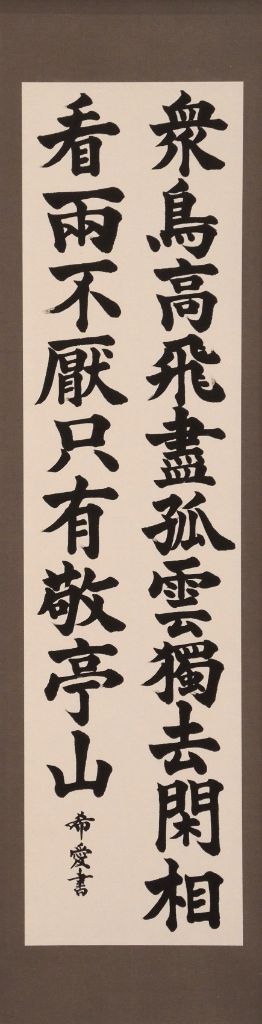 衆鳥高飛盡孤雲獨去閑相
看兩不厭只有敬亭山
希愛書